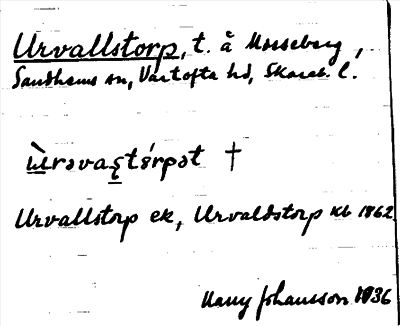 Urvallstorp, t. å Mosseberg,
Sandhems sn, Vartofta hd, Skarab. l.
ùrəvaʂtórpət †
Urvallstorp ek, Urvaldstorp kb 1862
Harry Johansson 1936